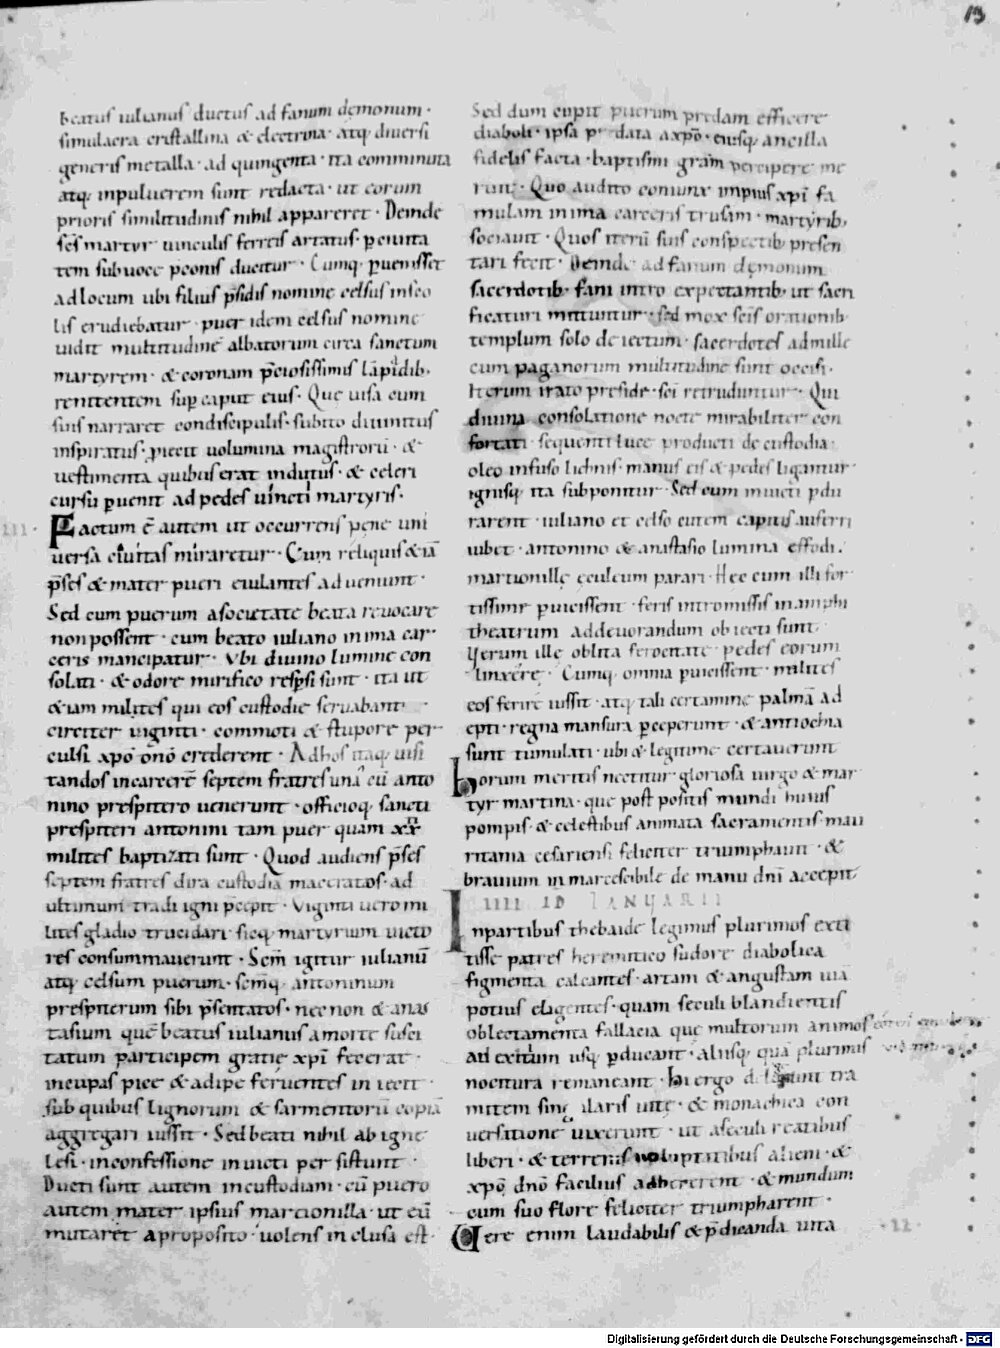 13
beatus iulianus ductus ad fanum demonum ·
simulacra cristallina & electrina · atq; diuersi
generis metalla · ad quingenta · ita comminuta
atq; inpuluerem sunt redacta · ut eorum
prioris similitudinis nihil appareret · Deinde
scs martyr uinculis ferreis artatus · p ciuita
tem subuoce pconis ducitur · Cumq; puenisset
adlocum ubi filius psidis nomine celsus insco
lis erudiebatur · puer idem celsus nomine
uidit multitudinē albatorum circa sanctum
martyrem · & coronam pciosissimis lapidib;
renitentem sup caput eius · Que uisa cum
suis narraret condiscipulis · subito diuinitus
inspiratus · piecit uolumina magistrorū · &
uestimenta quibus erat indutus · & celeri
cursu puenit ad pedes uincti martyris ·
III ·
Factum ē autem ut occurrens pene uni
uersa ciuitas miraretur · Cum reliquis & iā
pses & mater pueri eiulantes adueniunt ·
Sed cum puerum asocietate beata reuocare
non possent · cum beato iuliano inima car
ceris mancipatur · Vbi diuino lumine con
solati · & odore mirifico respsi sunt · ita ut
& iam milites qui eos custodie seruabant
circiter uiginti · commoti & stupore per
culsi xpō dnō crederent · Adhos itaq; uisi
tandos incarcerē septem fratres una cū anto
nino prespitero uenerunt · officioq; sancti
prespiteri antonini tam puer quam xx
milites baptizati sunt · Quod audiens pses
septem fratres dira custodia maceratos · ad
ultimum tradi igni pcepit · Viginti uero mi
lites gladio trucidari · sicq; martyrium victo
res consummauerunt · Scm igitur iulianū
atq; celsum puerum · scmq; antoninum
prespiterum sibi psentatos · nec non & anas
tasium quē beatus iulianus amorte susci
tatum participem gratie xpi fecerat ·
incupas pice & adipe feruentes iniecit ·
sub quibus lignorum & sarmentorū copiā
aggregari iussit · Sed beati nihil ab igne
lesi · inconfessione inuicti persistunt ·
Ducti sunt autem incustodiam · cū puero
autem mater ipsius marcionilla · ut eū
mutaret aproposito · uolens inclusa est ·
Sed dum cupit puerum predam efficere
diaboli · ipsa data axpō · eiusq; ancilla
fidelis facta · baptismi gram percipere me
ruit · Quo audito coniunx impius xpi fa
mulam inima carceris trusam · martyrib;
sociauit · Quos iterū suis conspectib; presen
tari fecit · Deinde ad fanum demonum
sacerdotib; fani intro expectantib; ut sacri
ficaturi mittuntur · sed mox scis orationib;
templum solo deiectum · sacerdotes admille
cum paganorum multitudine sunt occisi ·
Iterum irato preside · sci retruduntur · Qui
diuina consolatione nocte mirabiliter con
fortati · sequenti luce producti de custodia ·
oleo infuso lichnis · manus eis & pedes ligantur ·
ignisq; ita subponitur · Sed cum inuicti pdu
rarent · iuliano et celso cutem capitis auferri
iubet · antonino & anastasio lumina effodi ·
martionille eculeum parari · Hec cum illi for
tissime puicissent · feris intromissis in amphi
theatrum addeuorandum obiecti sunt
Verum ille oblita ferocitate · pedes eorum
linxere · Cumq; omnia puicissent · milites
eos ferire iussit · atq; tali certamine palmā ad
epti · regna mansura pceperunt · & antiochia
sunt tumulati · ubi & legitime certauerunt
horum meritis nectitur gloriosa uirgo & mar
tyr martina · que post positis mundi huius
pompis · & celestibus animata sacramentis · mau
ritania cesariensi feliciter triumphauit · &
brauium inmarcescibile de manu dni accepit
IIII ID IANUARII
Inpartibus thebaide legimus plurimos exti
tisse patres heremitico sudore diabolica
figmenta calcantes · artam & angustam uiā
potius eligentes · quam seculi blandientis
oblectamenta fallacia que multorum animos
ad exitium usq; pducant · aliisq; quā plurimis
nocitura remaneant · Hi ergo tra
mitem singularis uite · & monachica con
uersatione uixerunt · ut aseculi reatibus
liberi · & terrenis uoluptatibus alieni · &
xpō dnō facilius adhererent · & mundum
cum suo flore feliciter triumpharent ·
· II ·
Vere enim laudabilis & pdicanda uita
Digitalisierung gefördert durch die Deutsche Forschungsgemeinschaft · DFG